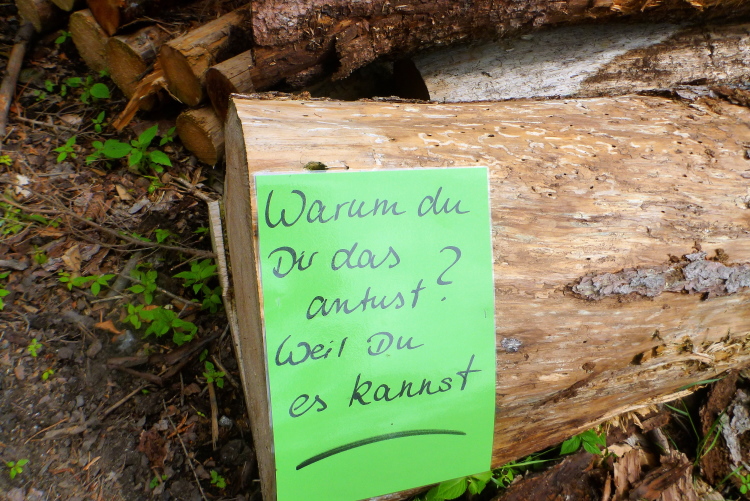 Warum du
Dir das
antust?
Weil Du
es kannst